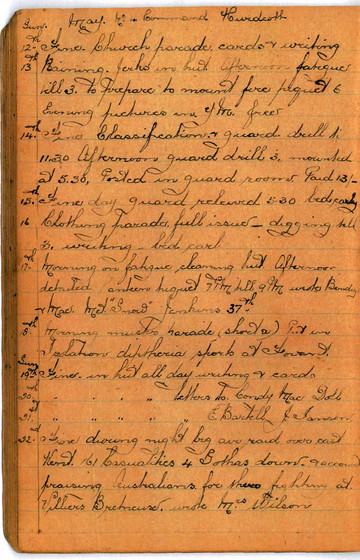 Sun. May. Command Hurdcott
12th Fine Church parade, cards & writing
13 Raining. Jerks in hut Afternoon fatigue
till 3. to prepare to mount fire piquet 6
Evening pictures in Y.M. free
14th Fine Classification & guard drill to
11.30 Afternoon guard drill 3, mounted
at 5.30, Posted in guard room Paid 13/-
15th Fine day guard relieved 5-30 bed early
16 Clothing parade, full issue - digging till
3, writing - bed early
17th Morning on fatigue cleaning hut Afternoon
detailed piquet 7 PM till 9 PM with
& Mac. Met "Snow" Jenkins 37th
Morning muster parade (shoot a) Put in
Isolation diptheria sports at Fovant.
Sun 19th Fine. in hut all day writing & cards
20th " " " " " letters to Condy Mac Doll
21st " " " " " E Bartell J Janson
22nd Fine during night big air raid over east
Kent 161 Casualties 4 Gothas down. &
praising Australians for fighting at
Villers Bretneux. wrote Mrs Wilson